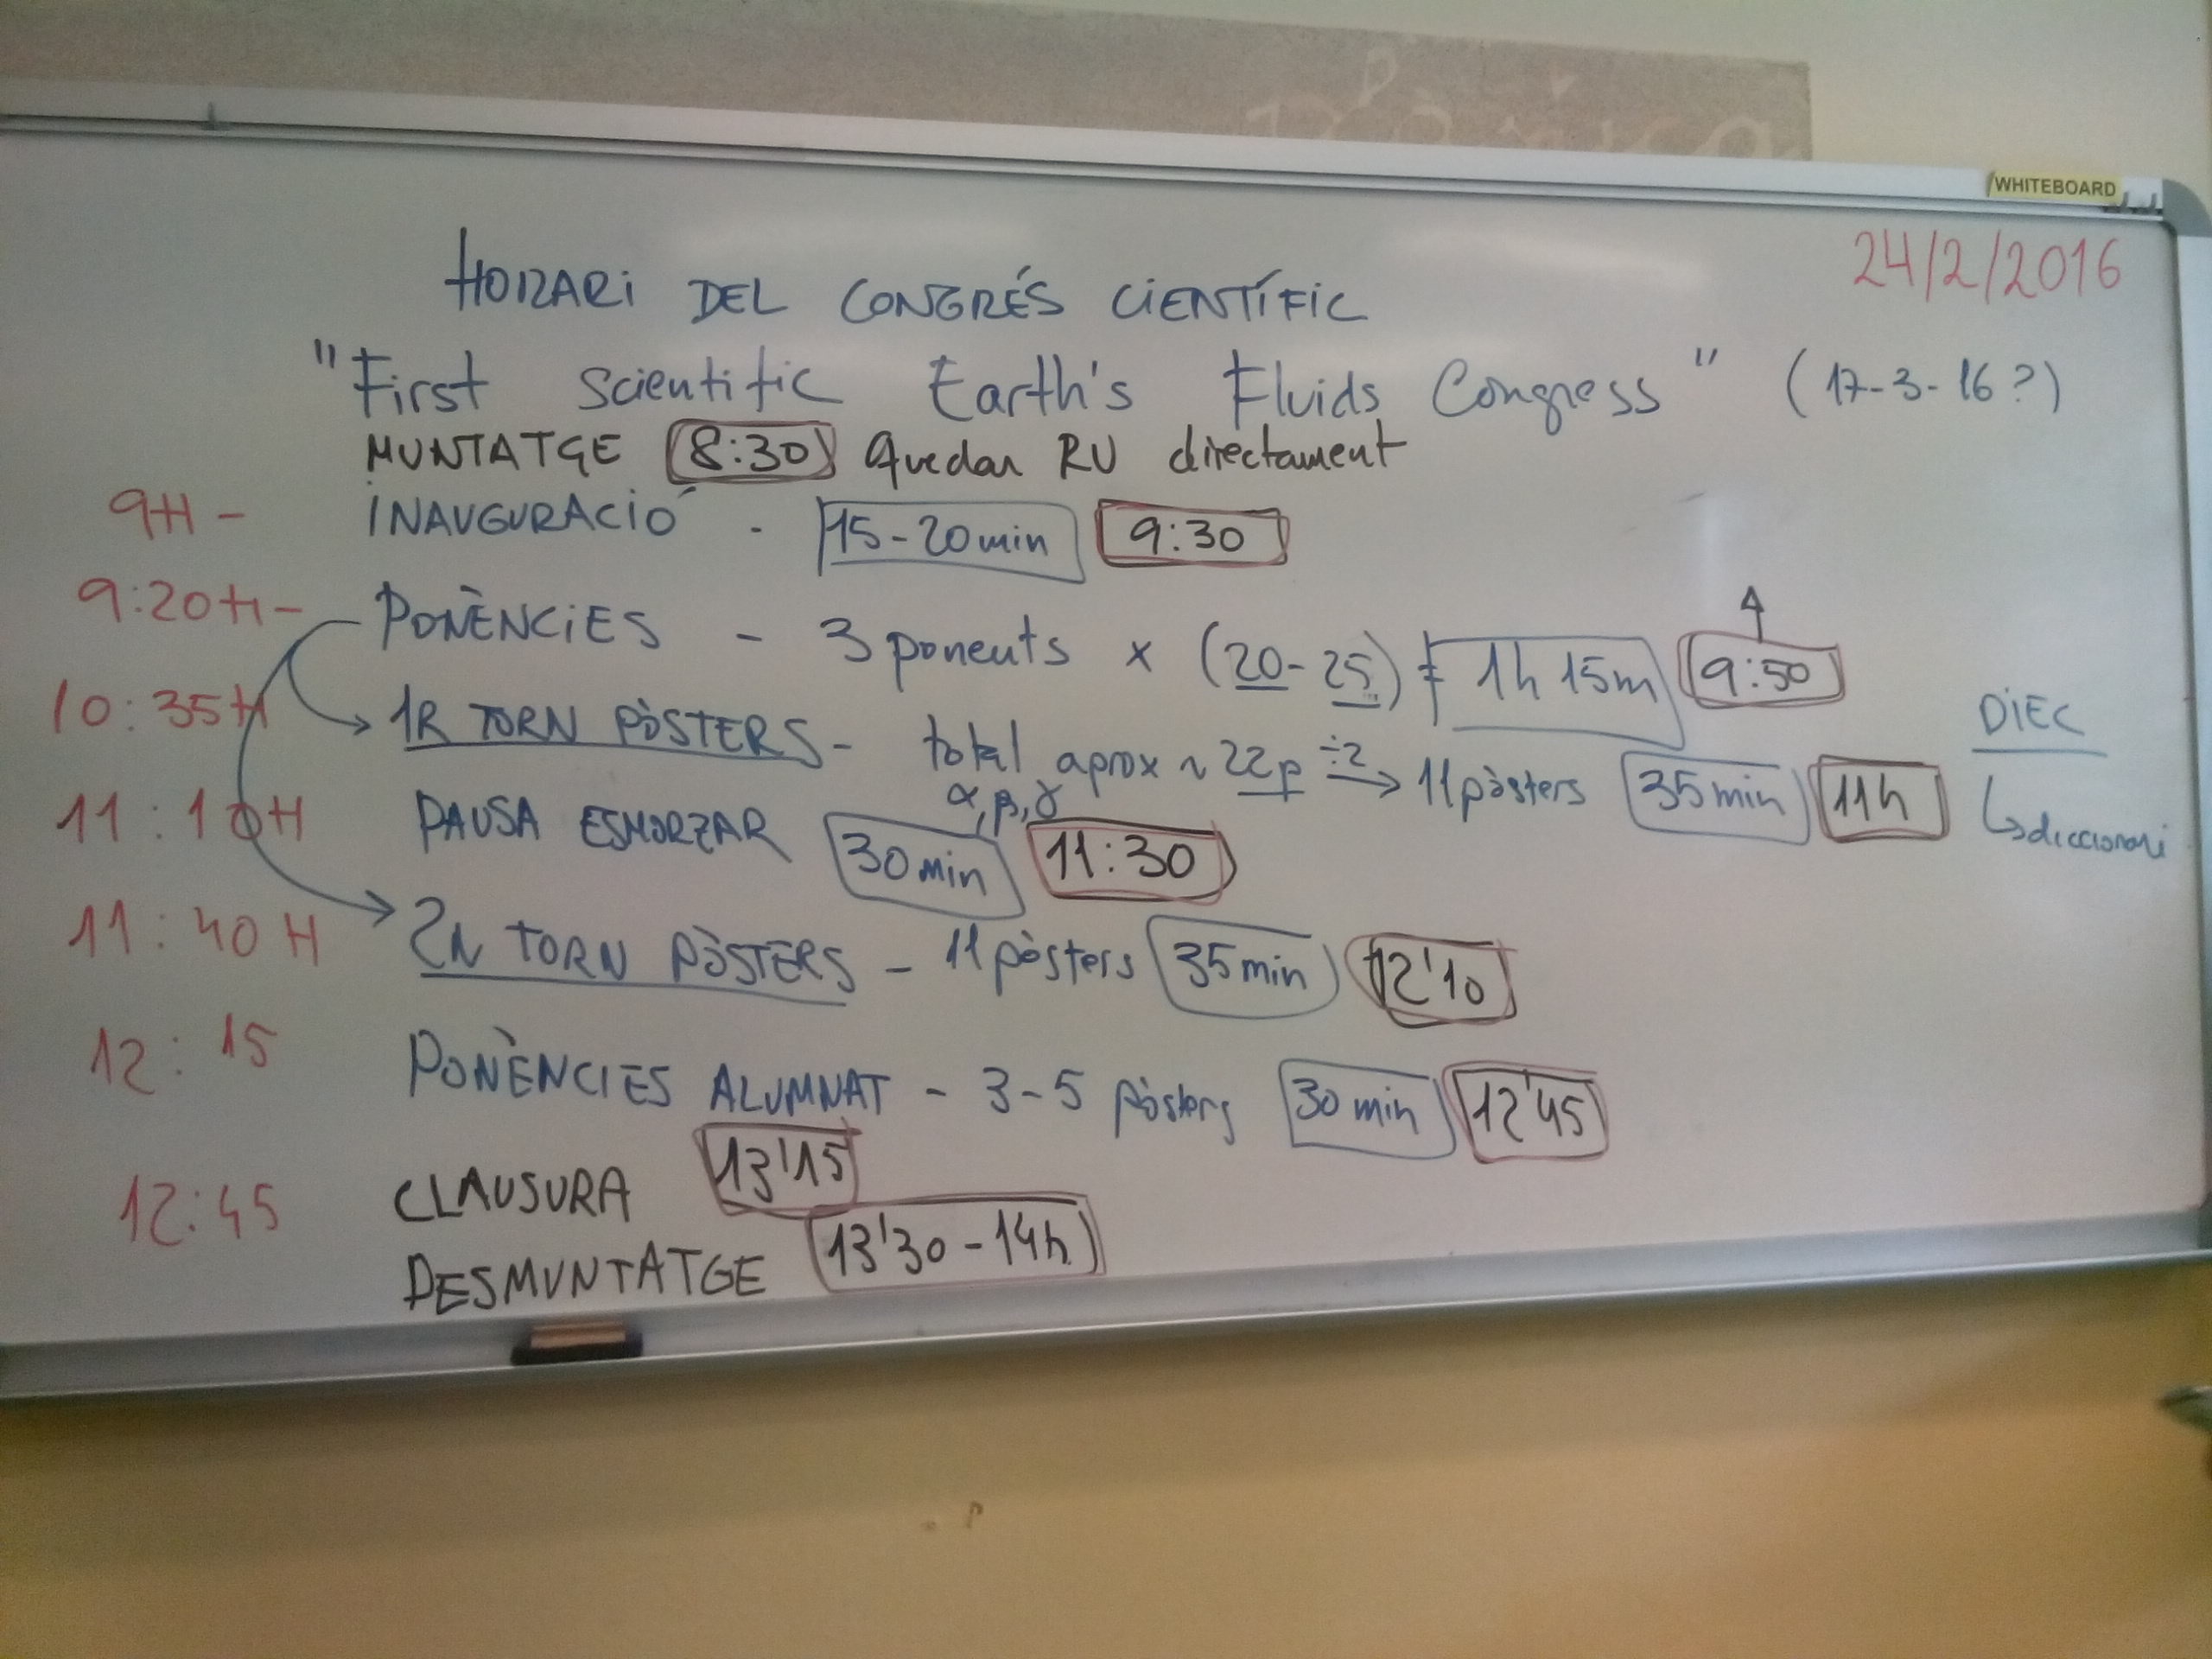 WHITEBOARD
24/2/2016
HORARI DEL CONGRÉS CIENTÍFIC
"First Scientific Earth's Fluids Congress" (17-3-16?)
MUNTATGE 8:30 Quedar RU directament
9H - INAUGURACIÓ - 15-20min 9:30
9:20H - PONÈNCIES - 3 ponents x (20-25) = 1h 15m 9:50
10:35H 1R TORN PÒSTERS - total aprox ~ 22p ÷2 → 11 pòsters 35min 11h
α, β, γ
DIEC
↳ diccionari
11:10H PAUSA ESMORZAR 30min 11:30
11:40H 2N TORN PÒSTERS - 11 pòsters 35min 12'10
12:15 PONÈNCIES ALUMNAT - 3-5 pòsters 30min 12'45
12:45 CLAUSURA 13'15
DESMUNTATGE 13'30-14h